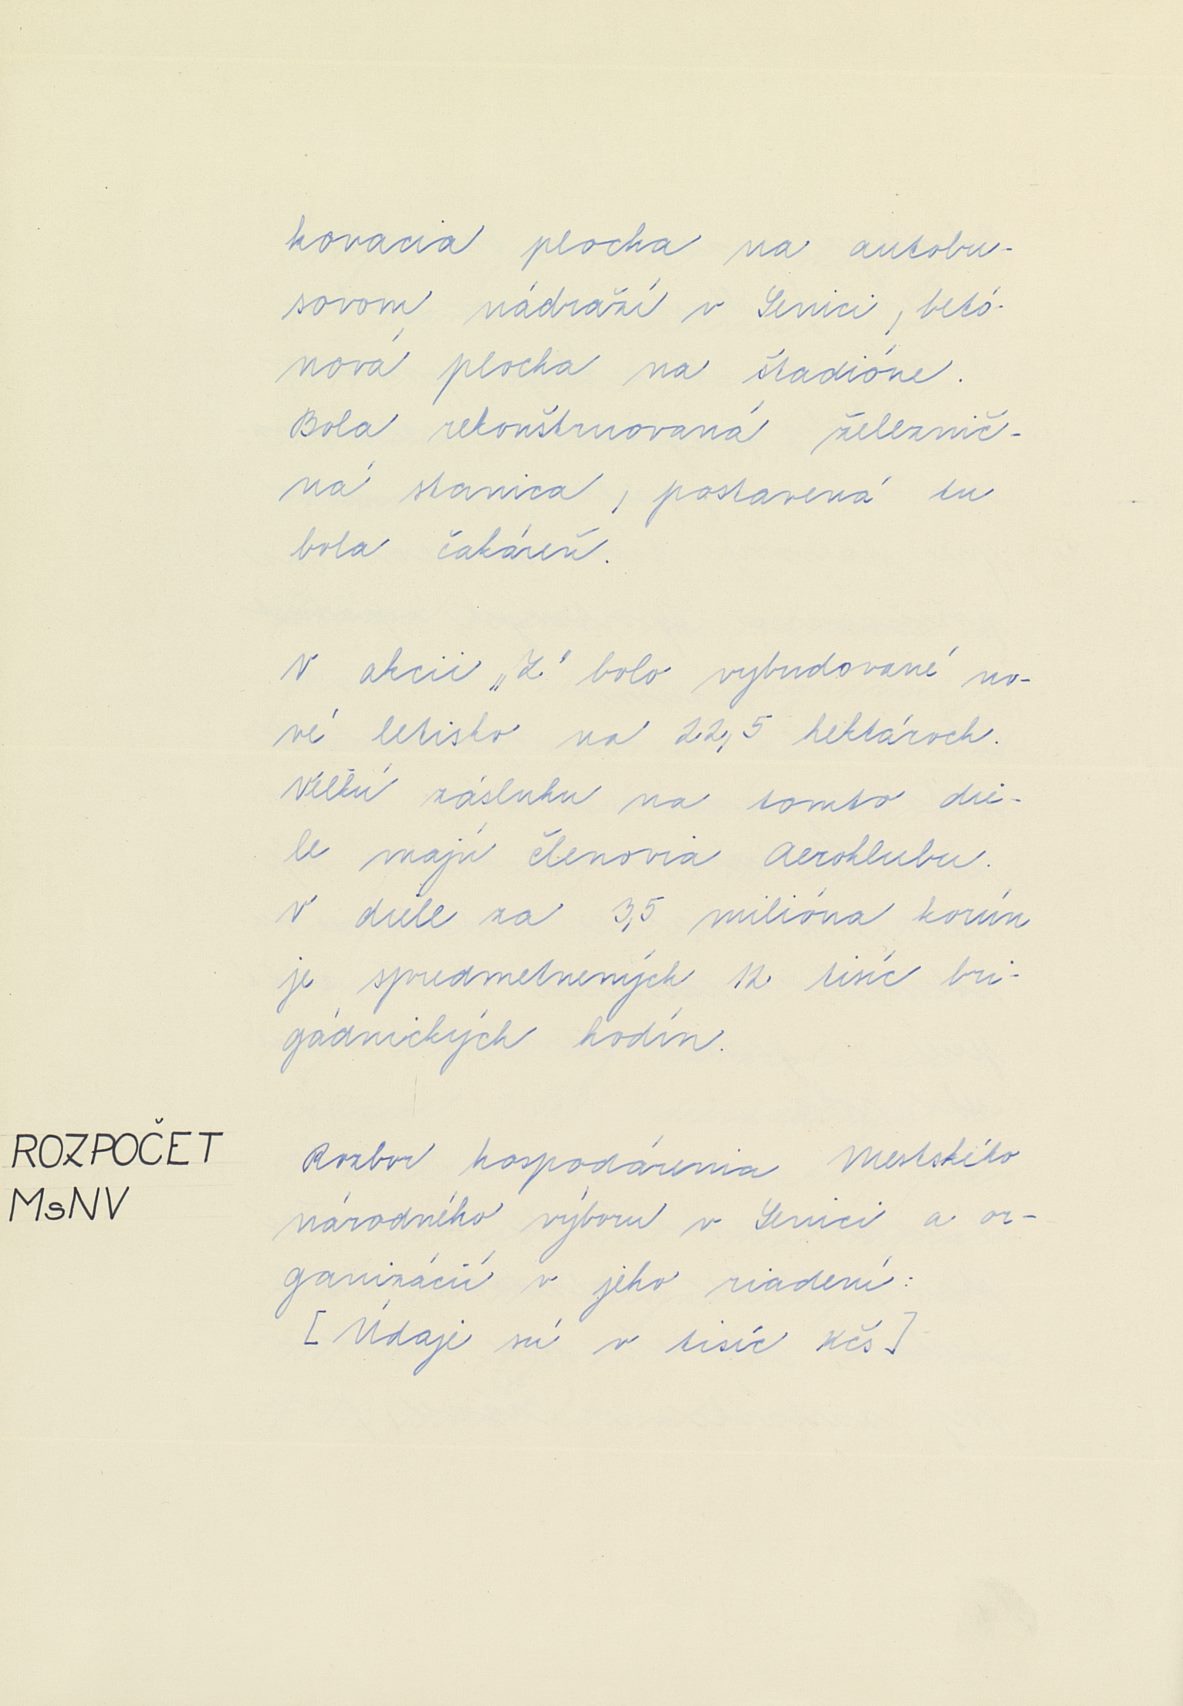 kovacia plocha na autobu-
sovom nádraží v Senici, betó-
nová plocha na štadióne.
Bola rekonštruovaná náležnič-
ná stanica, postavená tu
bola čakáreň.
V akcii „Z" bolo vybudované no-
vé letisko na 22,5 hektároch.
Veľkú zásluhu na tomto die-
le majú členovia Aeroklubu.
V diele za 3,5 milióna korún
je spredmetnených 12 tisíc bri-
gádnických hodín.
ROZPOČET
MsNV
Rozbor hospodárenia Mestského
národného výboru v Senici a or-
ganizácií v jeho riadení:
[Údaje sú v tisíc Kčs]